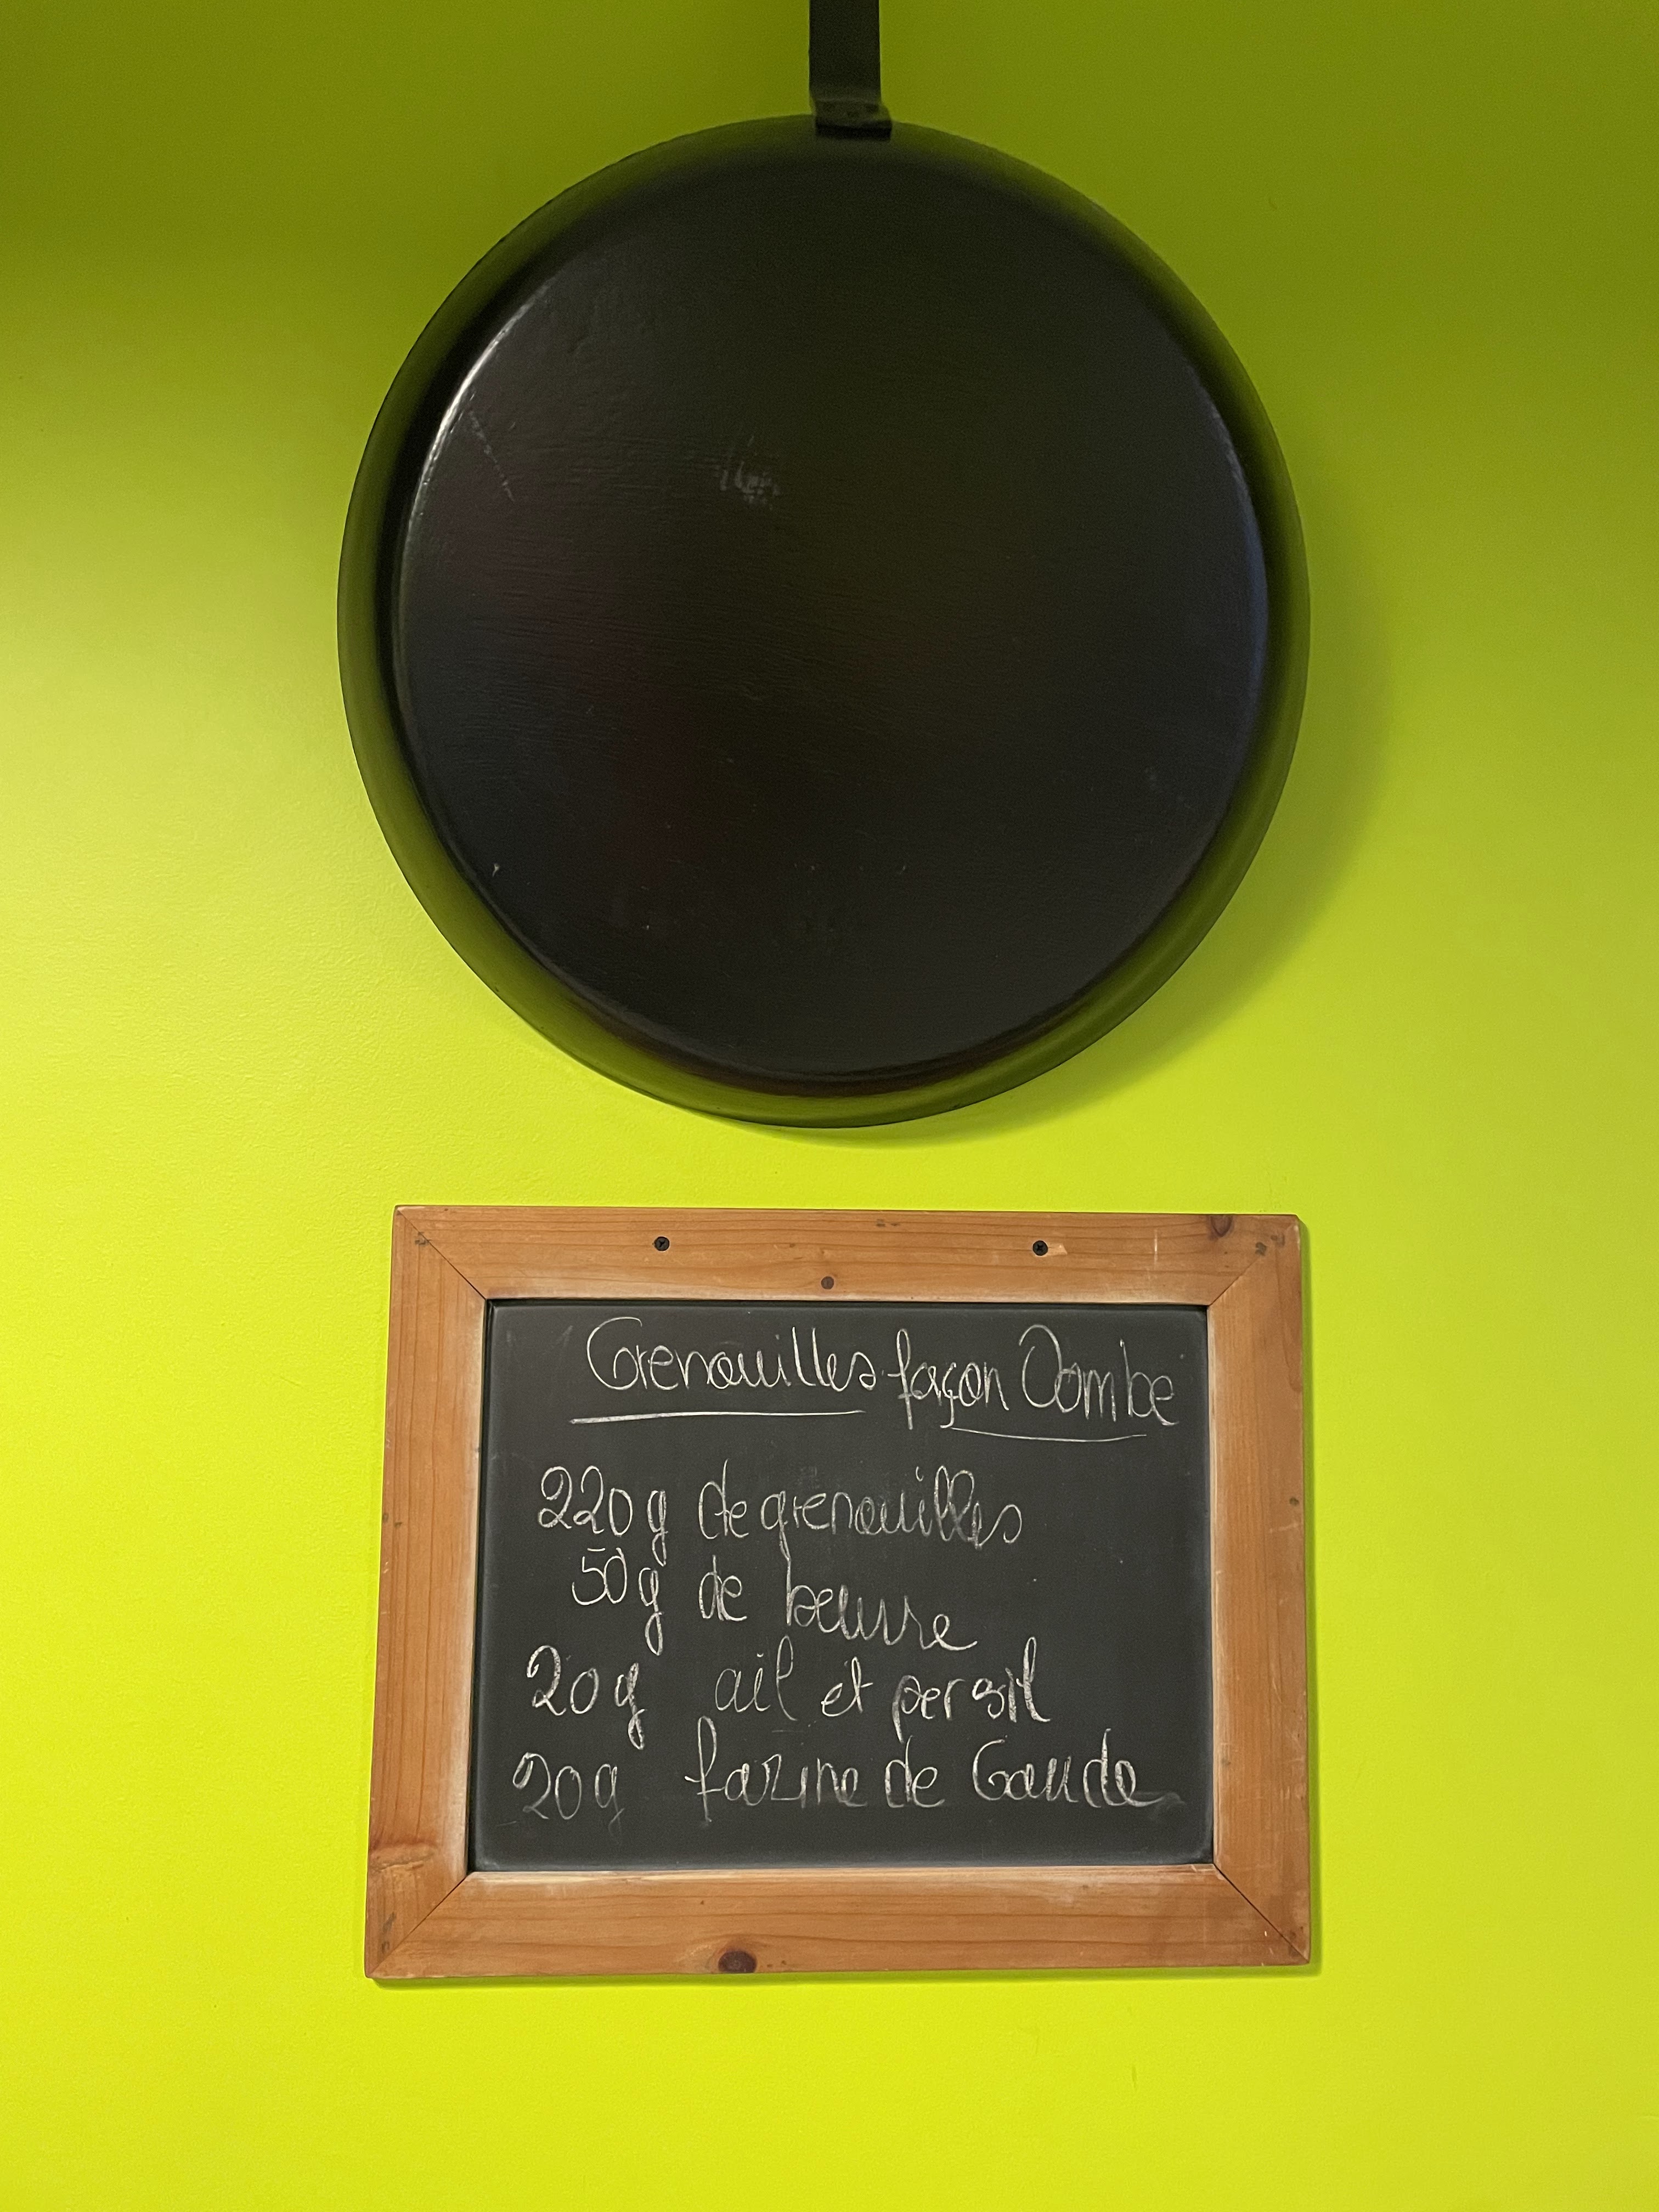 Grenouilles façon Dombe
220g de grenouilles
50g de beurre
20g ail et persil
20g farine de Gaude